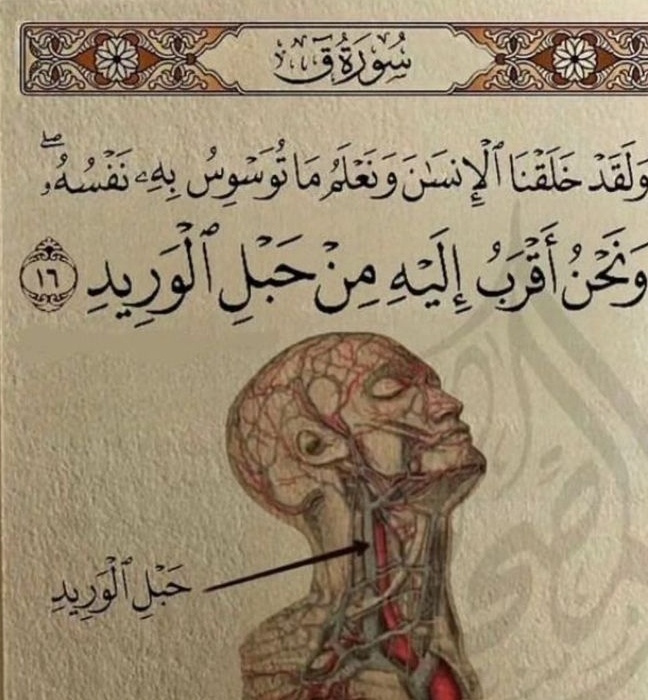 سُورَةُ قٓ
وَلَقَدْ خَلَقْنَا ٱلْإِنسَٰنَ وَنَعْلَمُ مَا تُوَسْوِسُ بِهِۦ نَفْسُهُۥۖ
وَنَحْنُ أَقْرَبُ إِلَيْهِ مِنْ حَبْلِ ٱلْوَرِيدِ ١٦
حَبْلِ ٱلْوَرِيدِ